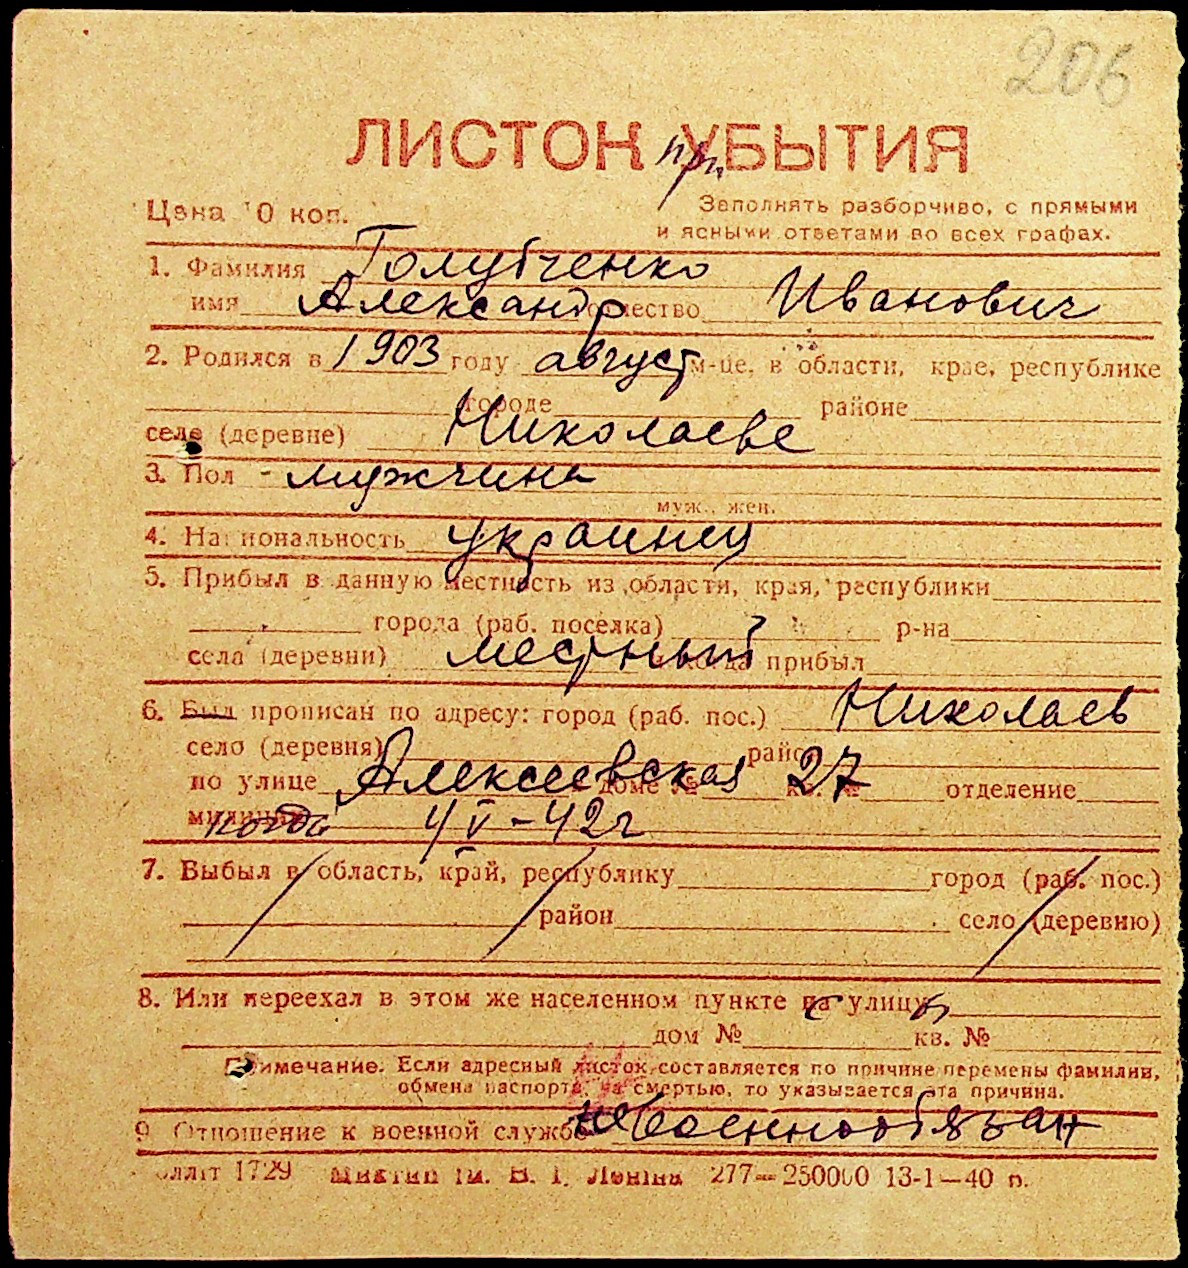 206
ЛИСТОК при УБЫТИЯ
Цена 10 коп. Заполнять разборчиво, с прямыми
и ясными ответами во всех графах.
1. Фамилия Голубченко
имя Александр отчество Иванович
2. Родился в 1903 году август м-це, в области, крае, республике
городе районе
селе (деревне) Николаеве
3. Пол - мужчина
муж., жен.
4. Национальность украинец
5. Прибыл в данную местность из области, края, республики
города (раб. поселка) р-на
села (деревни) местный и когда прибыл
6. Был прописан по адресу: город (раб. пос.) Николаев
село (деревня) район
по улице Алексеевская доме № 27 кв. № отделение
милиции когда 4/V-42г
7. Выбыл в область, край, республику город (раб. пос.)
район село (деревню)
8. Или переехал в этом же населенном пункте на улицу
дом № кв. №
Примечание. Если адресный листок составляется по причине перемены фамилии,
обмена паспорта, за смертью, то указывается эта причина.
9. Отношение к военной службе невоеннообязан
1729 Ім. В. І. Леніна 277—250000 13-1—40 р.